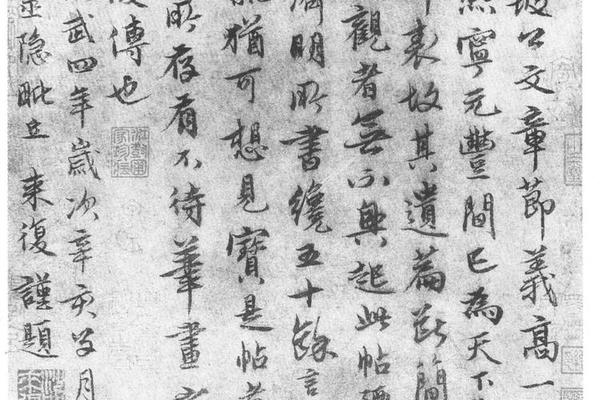 坡公文章節義高一
熙寧元豐間已為天下
故其遺篇斷簡
觀者無不興起此帖
濟明所書纔五十餘言
猶可想見寶是帖者
所存有不待筆畫
傳也
武四年歲次辛亥月
隱毗丘來復謹題